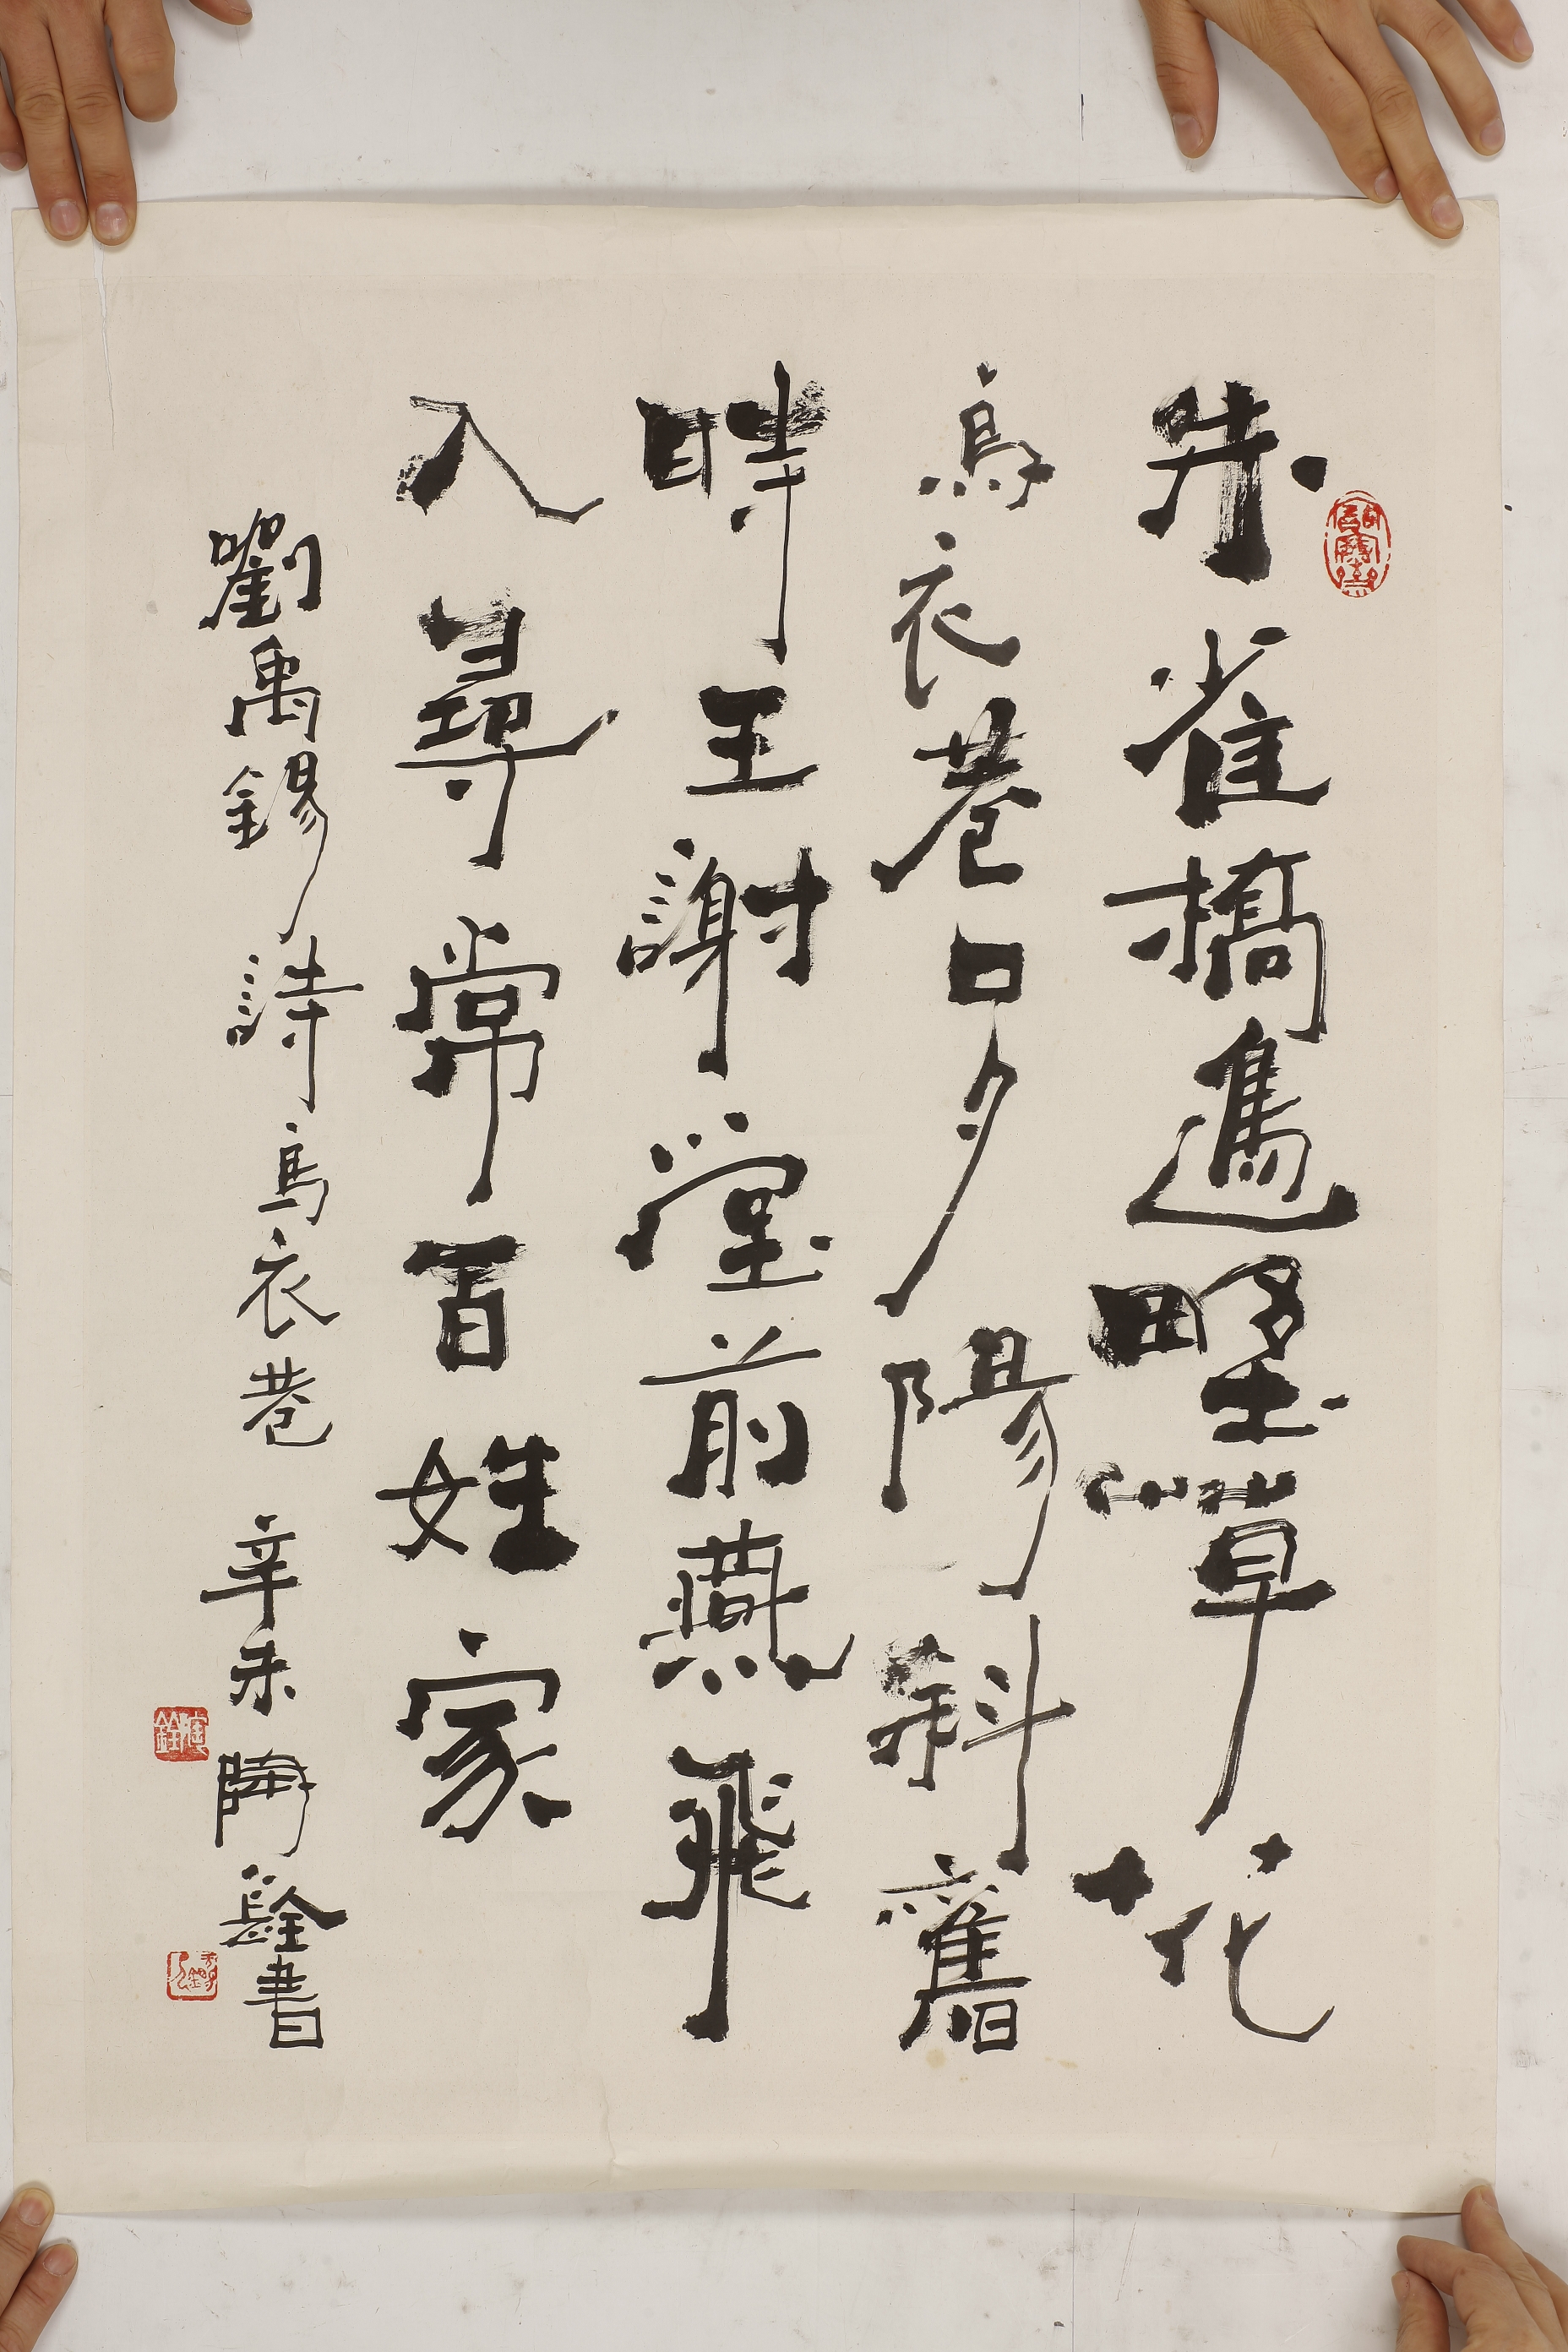 朱雀橋邊野草花
烏衣巷口夕陽斜舊
時王謝堂前燕飛
入尋常百姓家
劉禹錫詩烏衣巷 辛未 陶銓書
陶銓